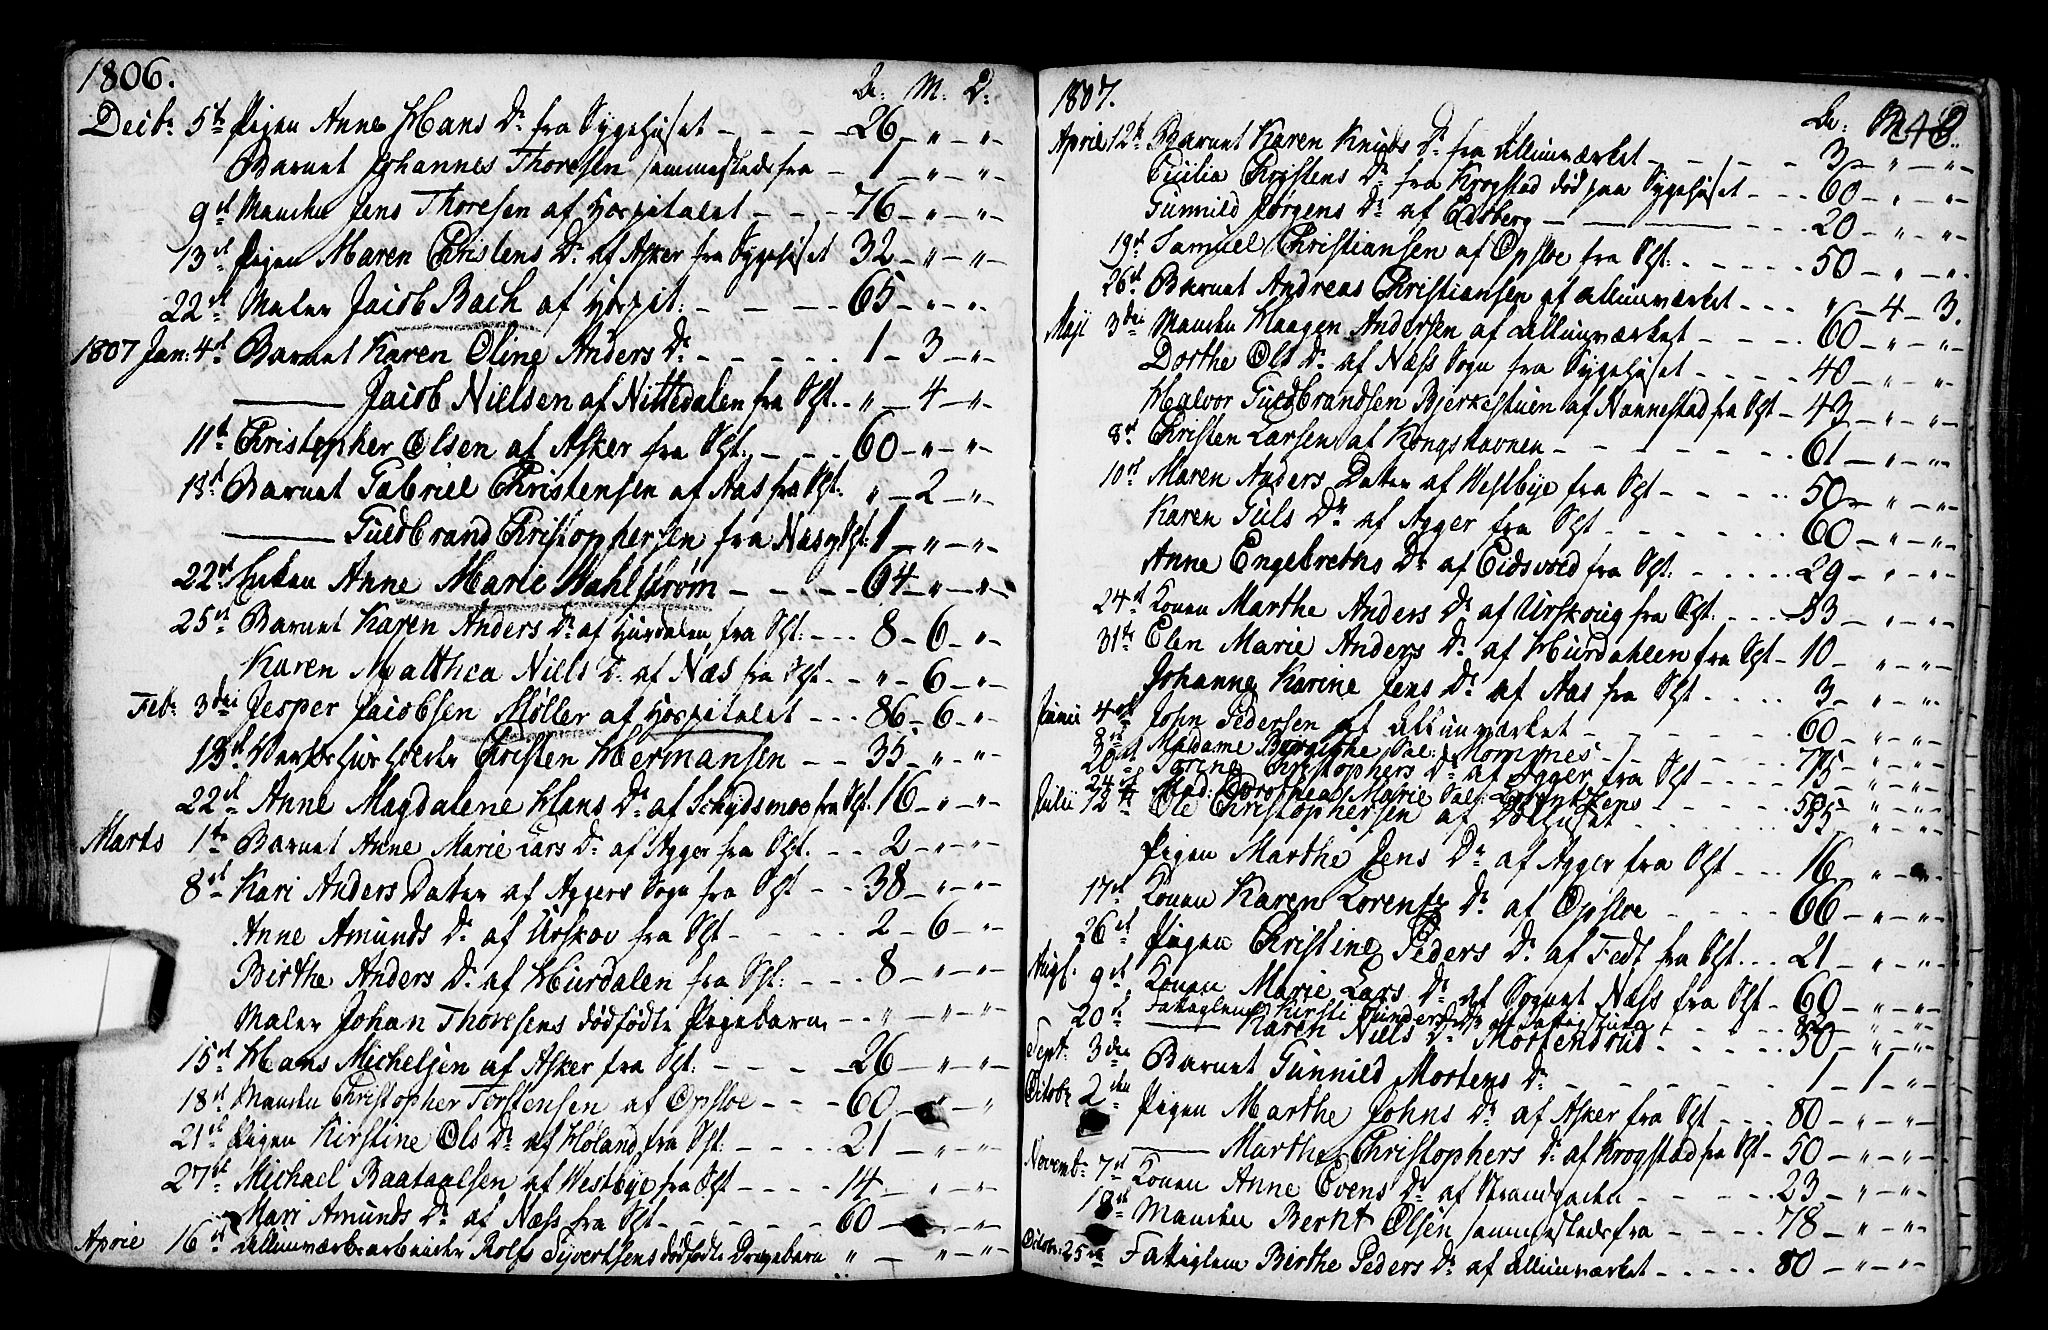 1806. Ar: M: D:
Decbr 5te Pigen Anne Hans Dr fra Sygehuset - - - - 26 - " - " -
Barnet Johannes Thoresen sammestedsfra - 1 - " - " -
9de Manden Jens Thoresen af Hospitalet - - - 76 - " - " -
13de Pigen Maren Christens Dr af Asker fra Sygehuset 32 - " - " -
22de Maler Jacob Bach af Hospit: - - - - 65 - " - " -
1807 Jan: 4de Barnet Karen Oline Anders Dr - - - - - 1 - 3 - " -
——— Jacob Nielsen af Nittedalen fra Sgt. - " - 4 - " -
11te Christopher Olsen af Asker fra Sgt: - - - 60 - " - " -
18de Barnet Gabriel Christensen af Aas fra Sgt: " - 2 - " -
——— Guldbrand Christophersen fra Næs Sgt: 1 - " - " -
22de Enken Anne Marie Wahlstrøm - - - - - 64 - " - " -
25de Barnet Karen Anders Dr af Hurdalen fra Sgt: - - - 8 - 6 - " -
Karen Malthea Niels Dr af Næs fra Sgt - - " - 6 - " -
Febr 3die Jesper Jacobsen Møller af Hospitalet - - - 86 - 6 - " -
13de Christen Hermansen - - 35 - " - " -
22de Anne Magdalene Hans Dr af Schydsmoe fra Sgt: 16 - " - " -
Marts 1te Barnet Anne Marie Lars Dr af Agger fra Sgt. - - 2 - " - " -
8de Kari Anders Datter af Aggers Sogn fra Sgt - - - 38 - " - " -
Anne Amunds Dr af Urskov fra Sgt - - - - - 2 - 6 - " -
Birthe Anders Dr af Hurdalen fra Sgt: - - - 8 - " - " -
Maler Johan Thoresens dödfödte Pigebarn - - " - " - " -
15de Hans Michelsen af Asker fra Sgt: - - - - 26 - " - " -
18de Manden Christopher Torstensen af Opsloe - - - 60 - " - "
21de Pigen Kirstine Ols Dr af Höland fra Sgt: - - - - 21 - " - " -
27de Michael Baataalsen af Westbye fra Sgt - - - - 14 - " - " -
Mari Amunds Dr af Næss fra Sgt - - - - - - 60 - " - " -
April 16de Allunværksarbeider Rolf Syvertsens dödfödte Drengebarn " - " - " -
1807. Ar: M D
April 12te Barnet Karen Knuds Dr fra Allunværket - - - - - 3 - " - " -
Cicilia Christens Dr fra Krogstad död paa Sygehuset - - - 60 - " - " -
Gunnild Jörgens Dr af Edsberg - - - - 20 - " - " -
19de Samuel Christiansen af Opsloe fra Sgt: - - - - - 50 - " - " -
26de Barnet Andreas Christiansen af Allunværket - - - " - 4 - 3.
Maji 3die Manden Haagen Andersen af Allunværket - - - - 60 - " - " -
Dorthe Ols Dr af Næss Sogn fra Sygehuset - - - - - 40 - " - " -
Halvor Guldbrandsen Bjerkestuen af Nannestad fra Sgt - 43 - " - " -
8de Christen Larsen af Kongshavnen - - - - - - - 61 - " - " -
10de Maren Anders Datter af Westbye fra Sgt - - - - - 50 - " - " -
Karen Guls Dr af Agger fra Sgt - - - - - - 60 - " - " -
Anne Engebreths Dr af Eidsvold fra Sgt: - - - - - 29 - " - " -
24de Konen Marthe Anders Dr af Urskoug fra Sgt. - - - - 53 - " - " -
31te Elen Marie Anders Dr af Hurdahlen fra Sgt - 10 - " - " -
Johanne Karine Jens Dr af Aas fra Sgt - - - - 3 - " - " -
Junii 4de John Pedersen af Allunværket - - - - - - 60 - " - " -
Madame Sal: Mommes - - - - 77 - " - " -
Christophers Dr af Agger fra Sgt - - - - 15 - " - " -
24de Mad: Dorothea Marie Sal: Lorentzens - - - - " - " -
Julii 12te Ole Christophersen af - - - - - - 55 - " - " -
Pigen Marthe Jens Dr af Agger fra Sgt - - - 16 - " - " -
17de Konen Karen Lorentz Dr af Opsloe - - - - - 66 - " - " -
26de Pigen Christine Peders Dr af Fedt fra Sgt. - - 21 - " - " -
Augs. 9de Konen Marie Lars Dr af Sognet Næss fra Sgt - 60 - " - " -
20de Fattiglem Kirsti Gunders Dr - - - - - " - " -
——— Karen Niels Dr Mortensrud - - - - - 50 - " - " -
Sept: 3die Barnet Gunnild Mortens Dr - - - - - - - 1 - 1 - " -
Octobr 2den Pigen Marthe Johns Dr af Asker fra Sgt - - - 80 - " - " -
——— Marthe Christophers Dr af Krogstad fra Sgt - 50 - " - " -
Novembr 7de Konen Anne Evens Dr af Strandgaden - - - - - 23 - " - " -
18de Manden Bernt Olsen sammestedsfra - - - - 78 - " - " -
Octobr 25de Fattiglem Birthe Peders Dr af Allunværket - - - - - 80 - " - " -